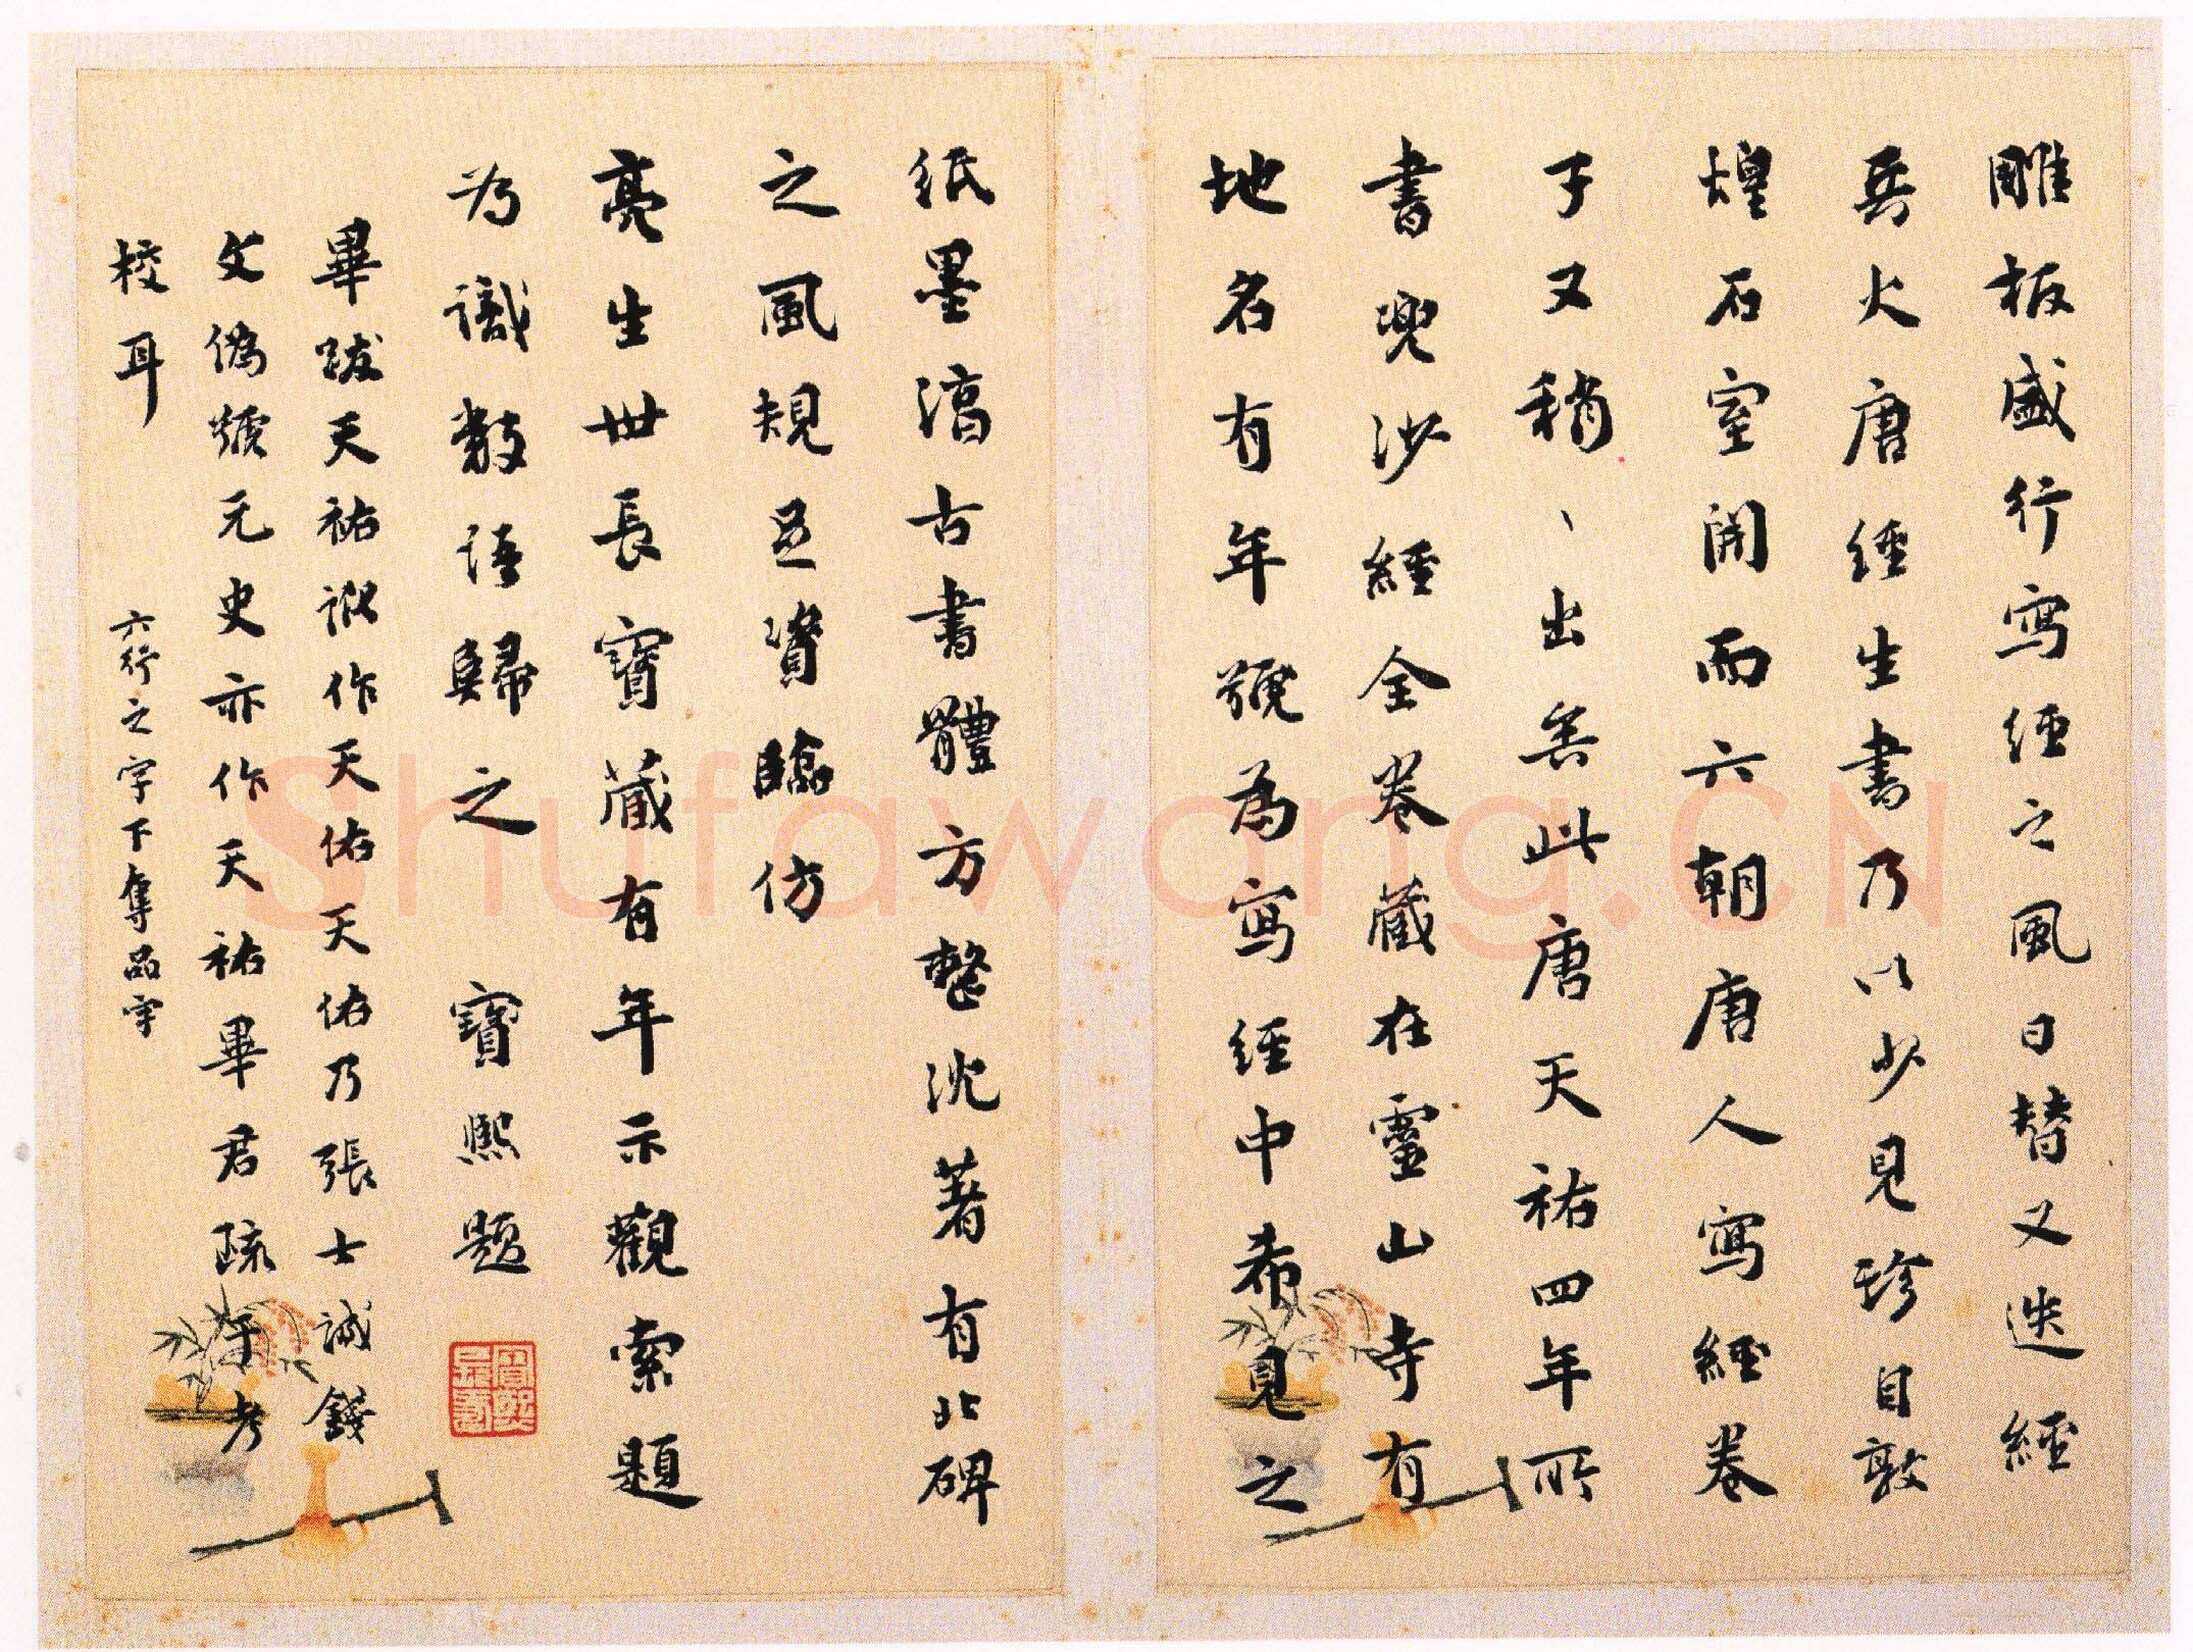 雕板盛行寫經之風日替又迭經
兵火唐經生書乃以少見珍自敦
煌石室開而六朝唐人寫經卷
子又稍、出矣此唐天祐四年所
書兜沙經全卷藏在靈山寺有
地名有年號為寫經中希見之
品
紙墨湻古書體方整沈著有北碑
之風規足資臨仿
亮生世長寶藏有年示觀索題
为識數語歸之 寶熙題
畢跋天祐訛作天佑天佑乃張士誠錢
文偽號元史亦作天祐畢君疏于考
校耳 六行之字下奪品字
Shufawang.CN